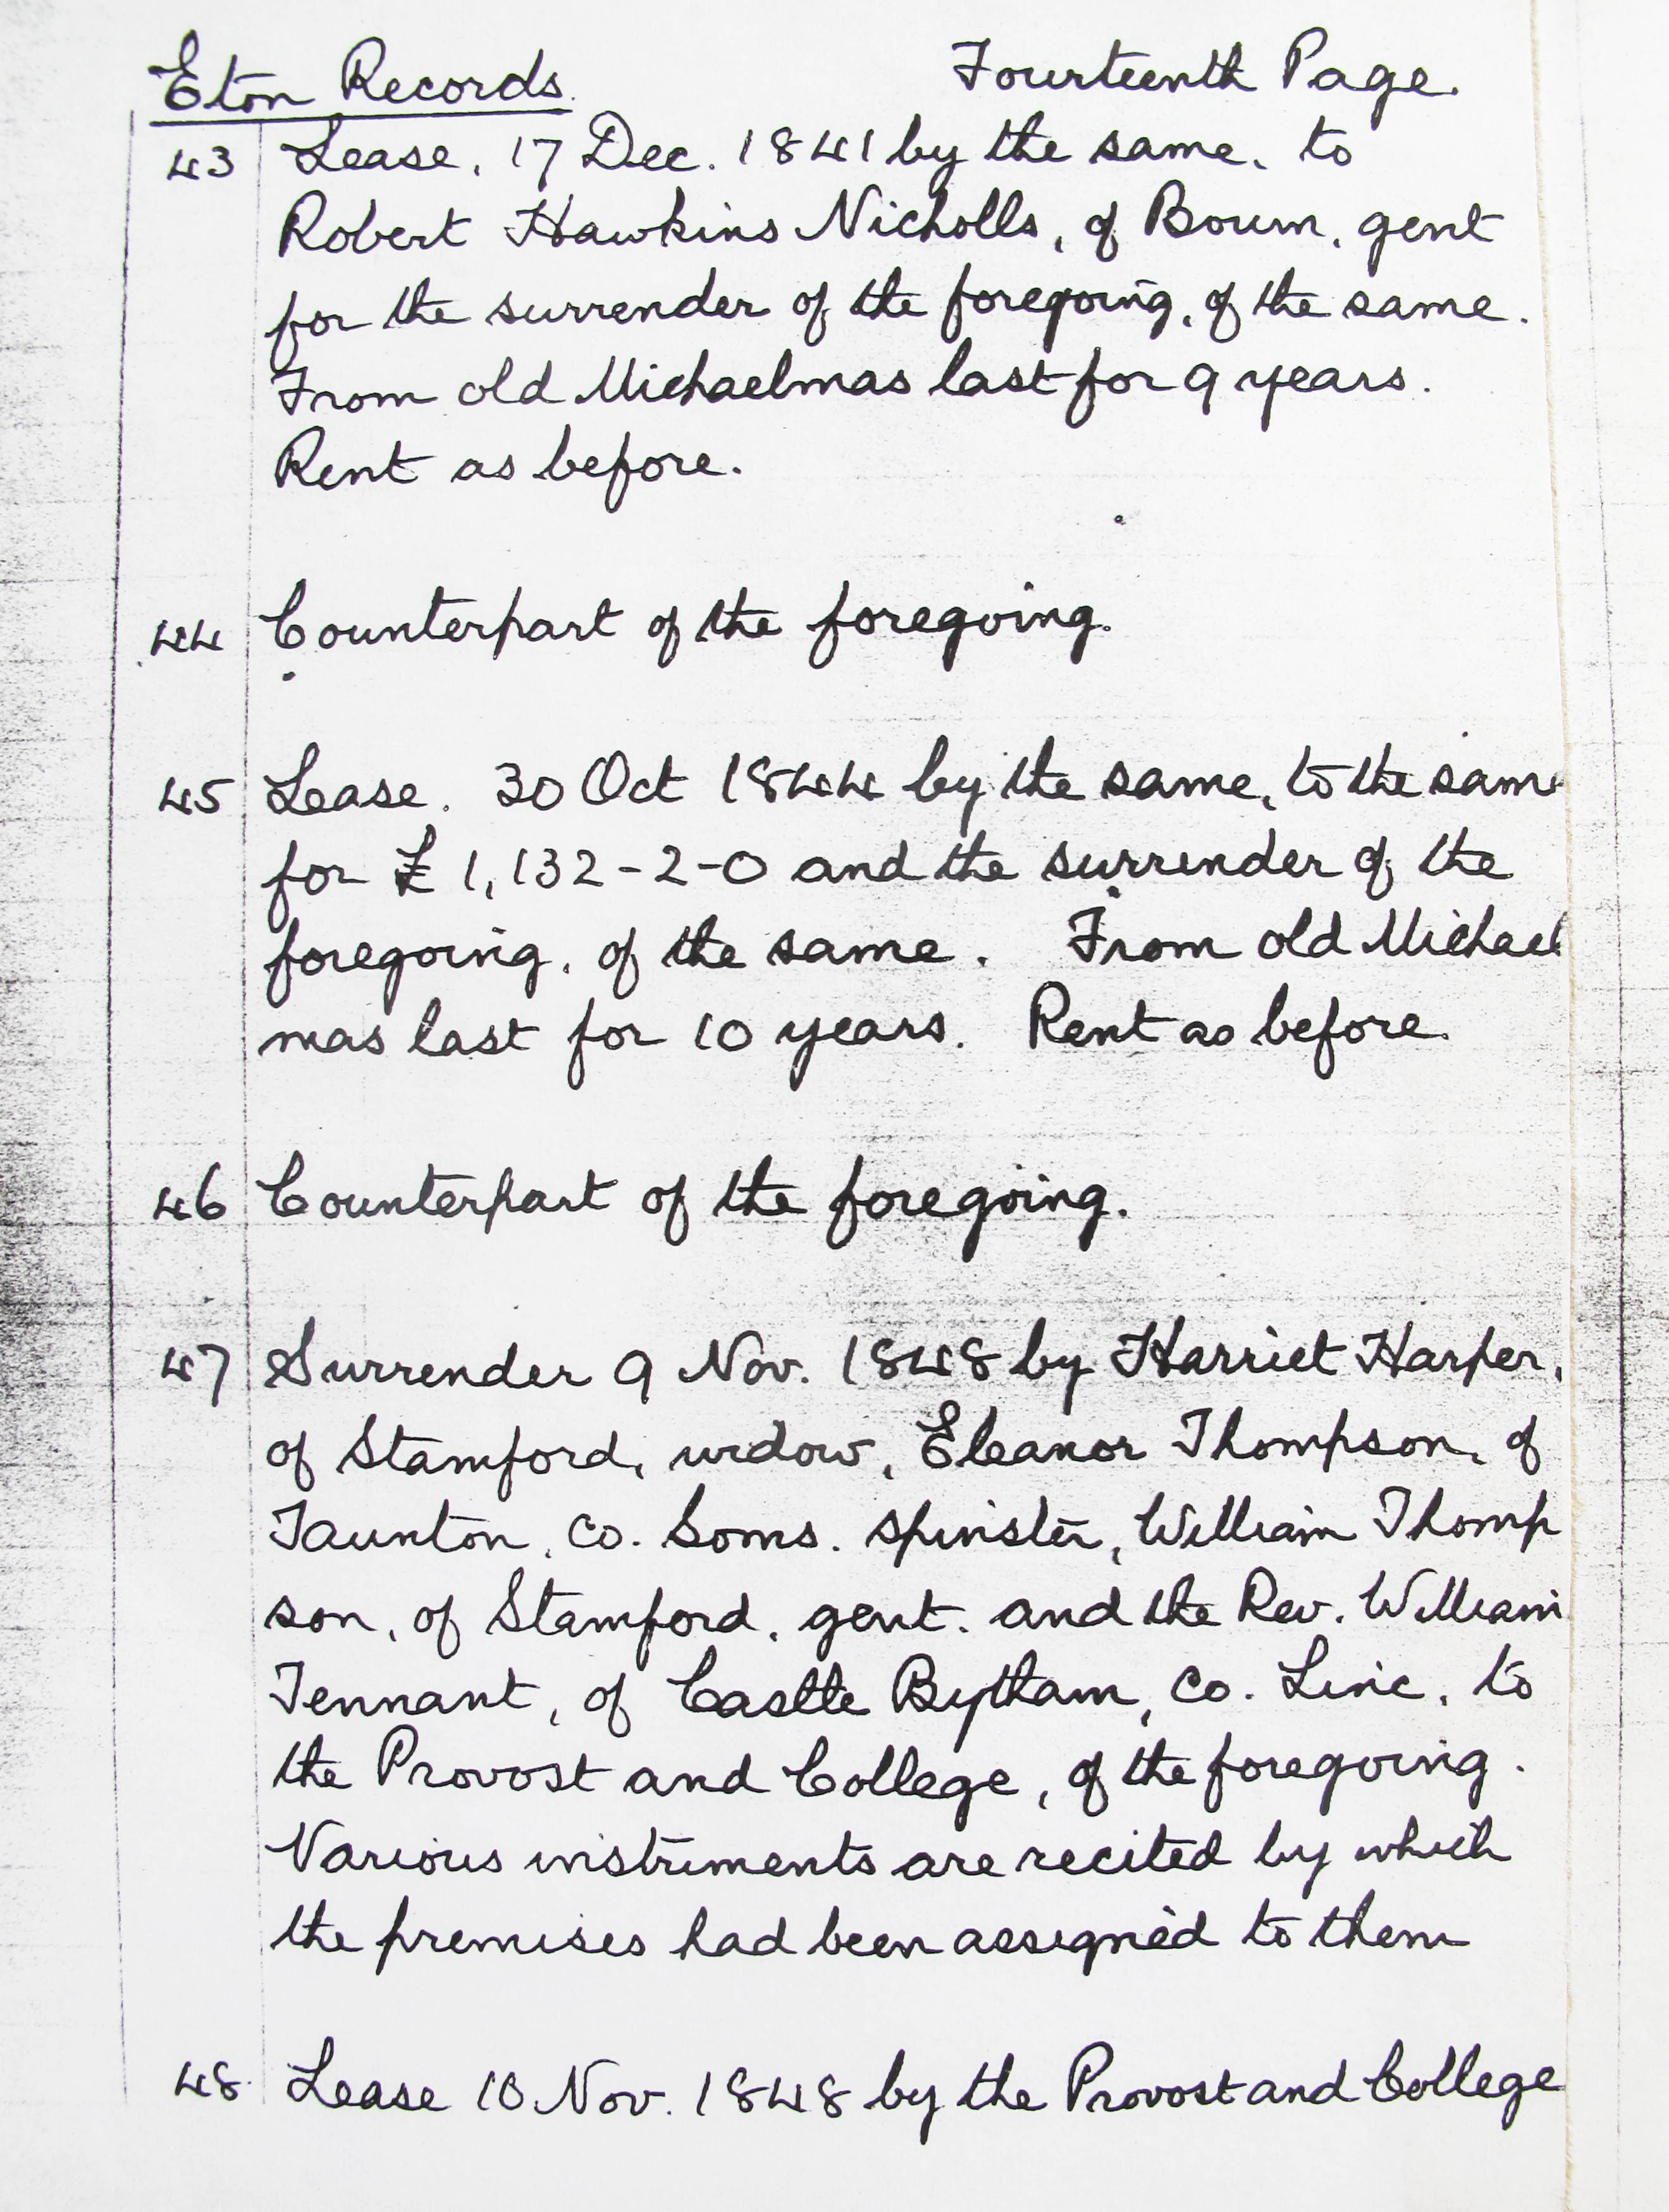 Eton Records. Fourteenth Page.
43 Lease, 17 Dec. 1841 by the same, to
Robert Hawkins Nicholls, of Bourn, gent
for the surrender of the foregoing, of the same.
From old Michaelmas last for 9 years.
Rent as before.
44 Counterpart of the foregoing.
45 Lease. 30 Oct 1844 by the same, to the same
for £1,132-2-0 and the surrender of the
foregoing, of the same. From old Michael
mas last for 10 years. Rent as before.
46 Counterpart of the foregoing.
47 Surrender 9 Nov. 1848 by Harriet Harper,
of Stamford, widow, Eleanor Thompson, of
Taunton, co. Soms. spinster, William Thomp
son, of Stamford, gent. and the Rev. William
Tennant, of Castle Bytham, co. Linc, to
the Provost and College, of the foregoing.
Various instruments are recited by which
the premises had been assigned to them
48. Lease 10 Nov. 1848 by the Provost and College